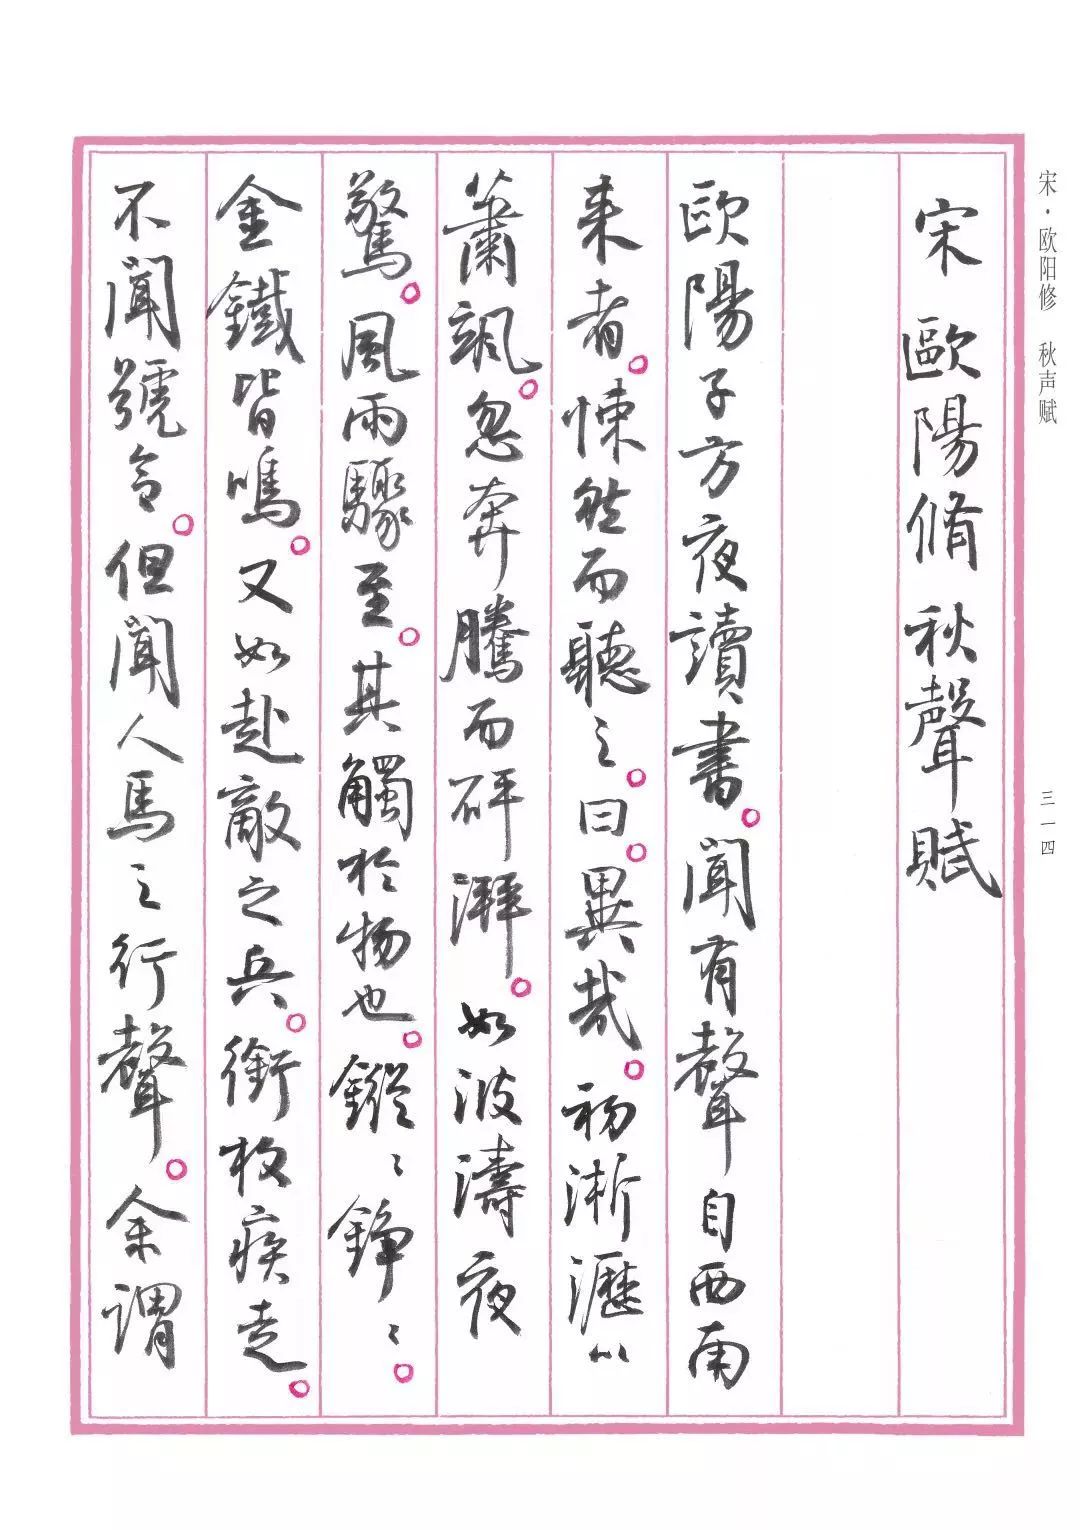 宋·欧阳修 秋声赋
三一四
宋 歐陽脩 秋聲賦
歐陽子方夜讀書。聞有聲自西南
来者。悚然而聽之。曰。異哉。初淅瀝以
蕭颯。忽奔騰而砰湃。如波濤夜
驚。風雨驟至。其觸於物也。鏦〻錚〻。
金鐵皆鳴。又如赴敵之兵。銜枚疾走。
不聞號令。但聞人馬之行聲。余謂